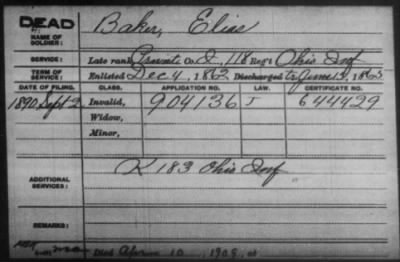 DEAD
NAME OF SOLDIER: Baker, Elias
SERVICE: Late rank Private Co. I, 118 Reg't Ohio Inf
TERM OF SERVICE: Enlisted Dec 4, 1862 Discharged tr June 13, 1865
DATE OF FILING. CLASS. APPLICATION NO. LAW. CERTIFICATE NO.
1890 Sept 2 Invalid, 904136 I 644429
Widow,
Minor,
ADDITIONAL SERVICES: K 183 Ohio Inf.
REMARKS:
Died 10, 1908, at